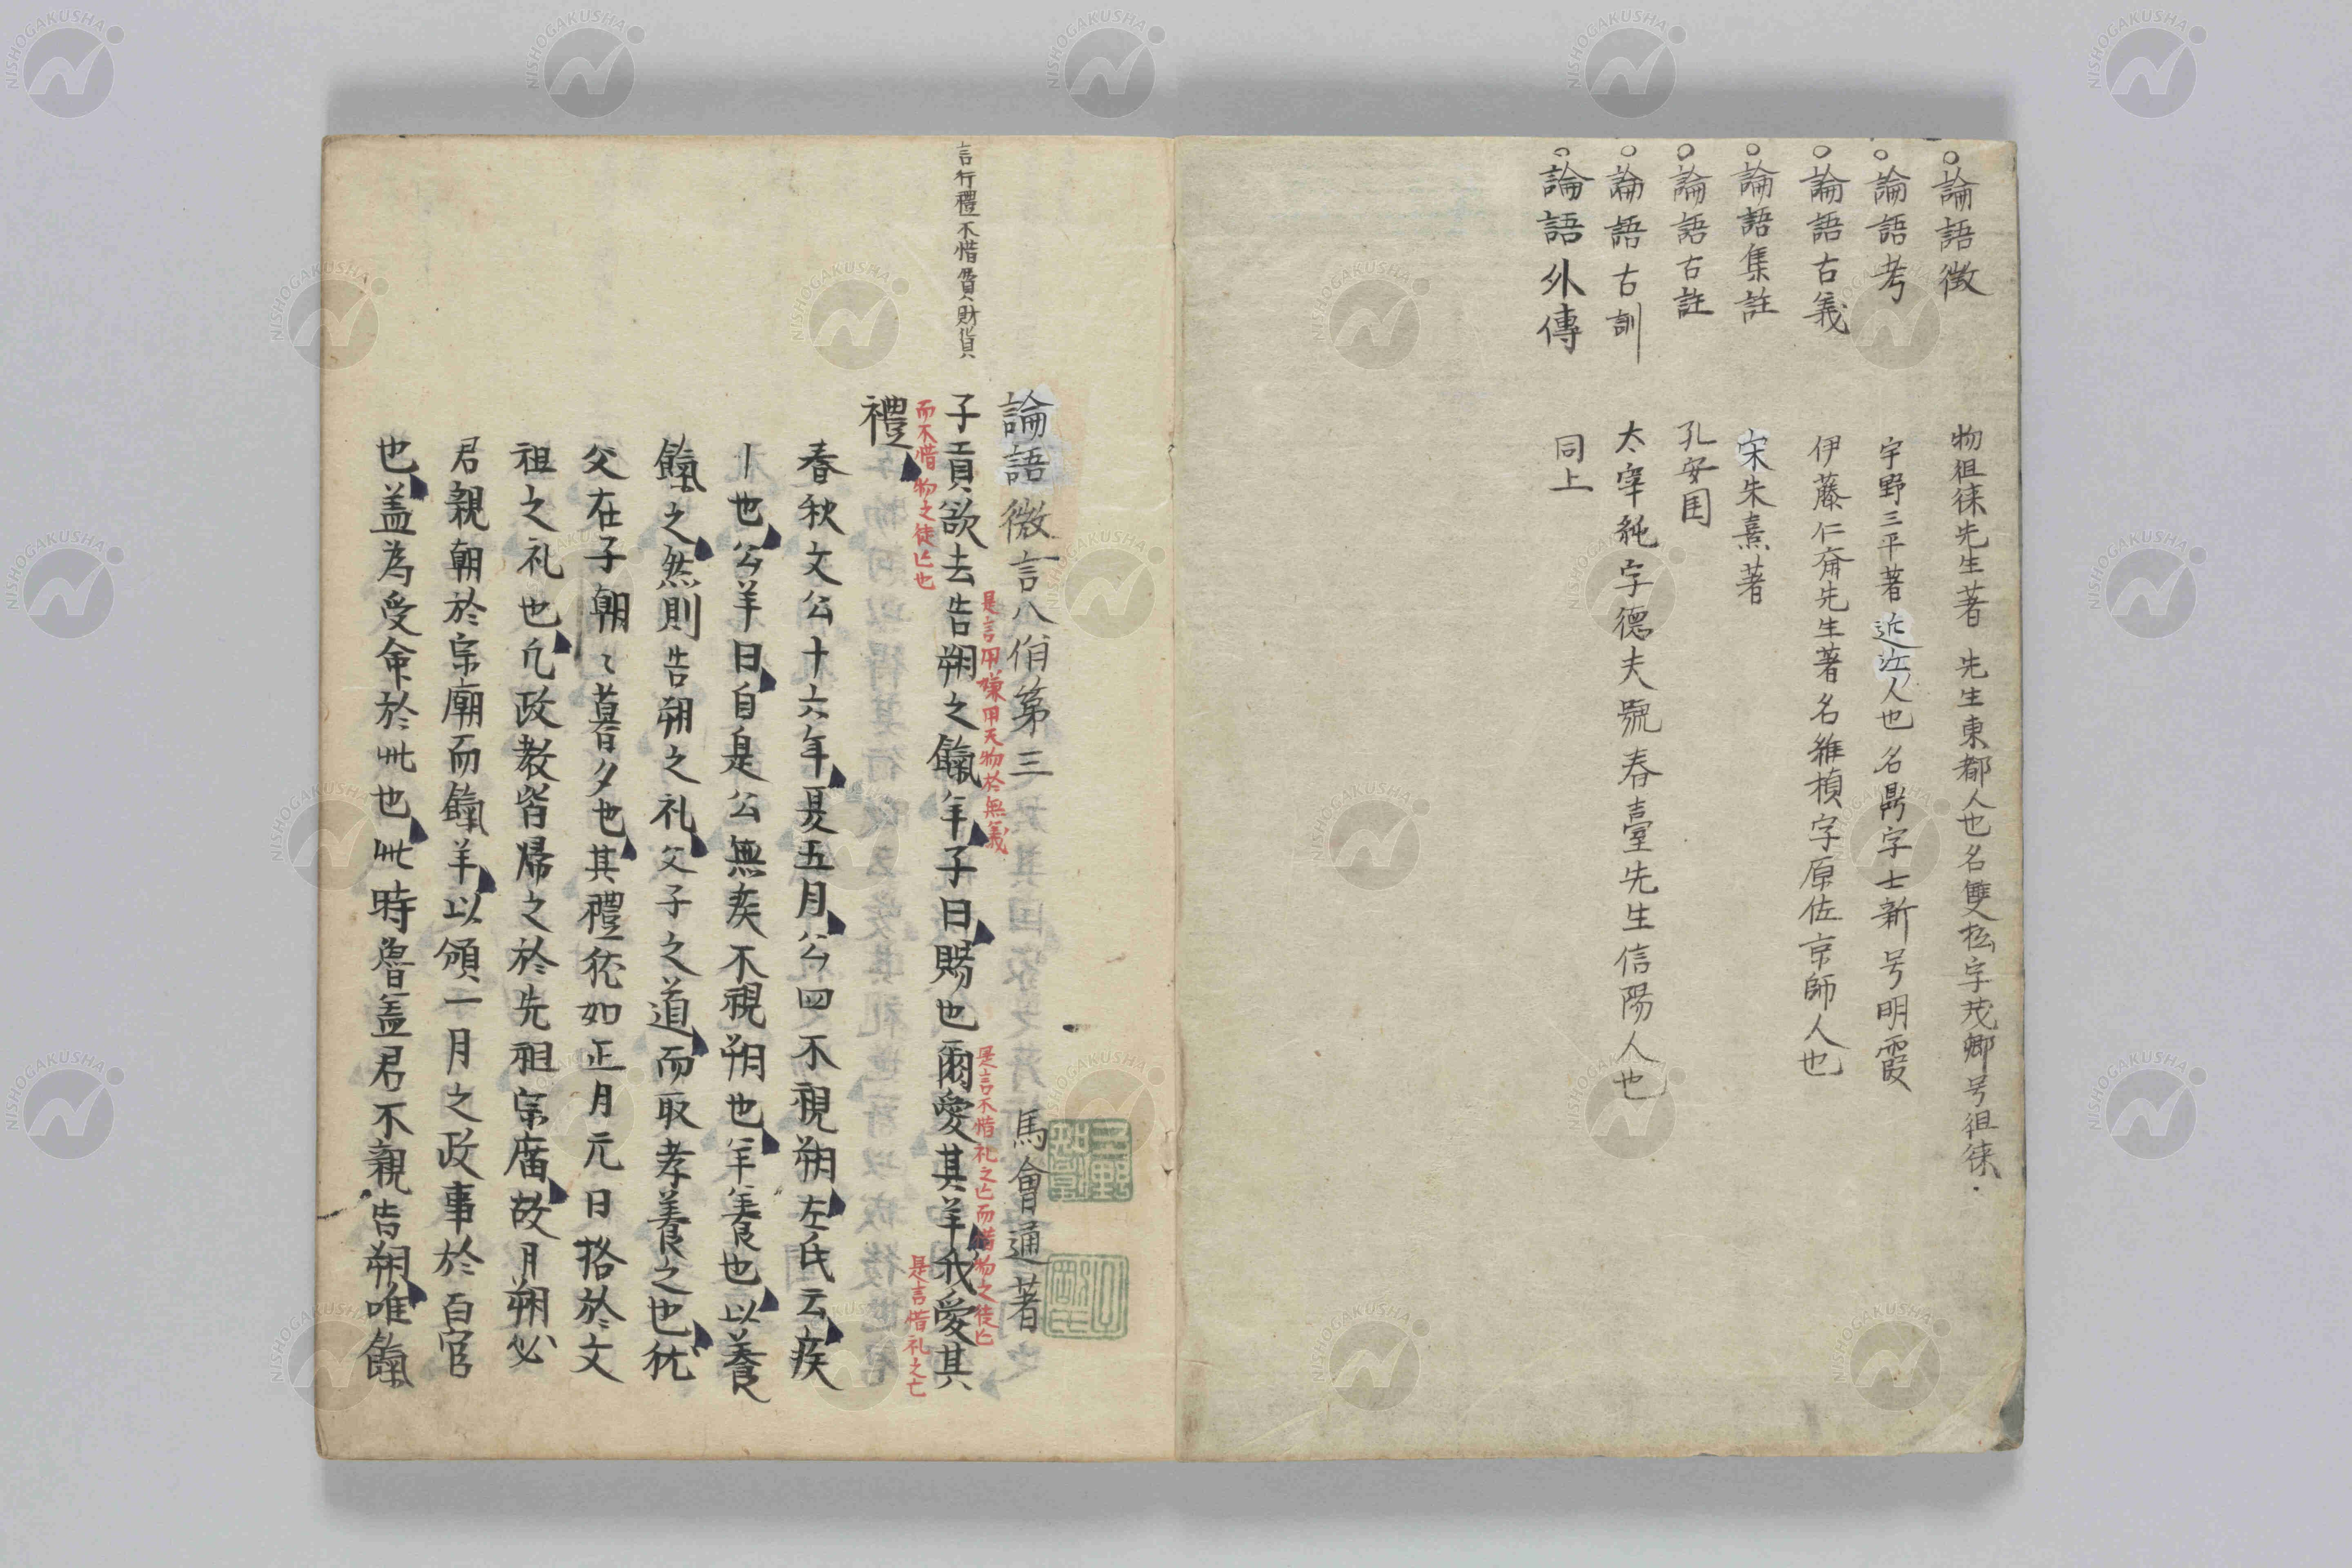 ○論語徴　物徂徠先生著　先生東都人也名雙松字茂卿号徂徠・
○論語考　宇野三平著近江人也名鼎字士新号明霞
○論語古義　伊藤仁斎先生著名維楨字原佐京師人也
○論語集註　宋朱熹著
○論語古註　孔安国
○論語古訓　太宰純字德夫號春臺先生信陽人也
○論語外傳　同上
言行禮不惜費財貨
論語微言八佾第三　馬會通著
是言用嫌用天物於無義
是言不惜礼之亡而惜物之徒亡
子貢欲去告朔之餼羊子曰賜也爾愛其羊我愛其
而不惜物之徒亡也
是言惜礼之亡
禮
春秋文公十六年夏五月公四不視朔左氏云疾
｜也公羊曰自是公無疾不視朔也羊養也以養
餼之然則告朔之礼父子之道而取孝養之也犹
父在子朝〻暮夕也其禮犹如正月元日格於文
祖之礼也凢政教皆帰之於先祖宗廟故月朔必
君親朝於宗廟而餼羊以頒一月之政事於百官
也盖為受命於此也此時魯盖君不親告朔唯餼
NISHOGAKUSHA